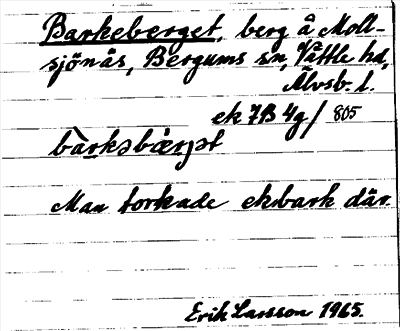 Barkeberget, berg å Moll-
sjönäs, Bergums sn, Vättle hd,
Älvsb. l.
ek 7B 4g / 805
Man torkade ekbark där.
Erik Larsson 1965.